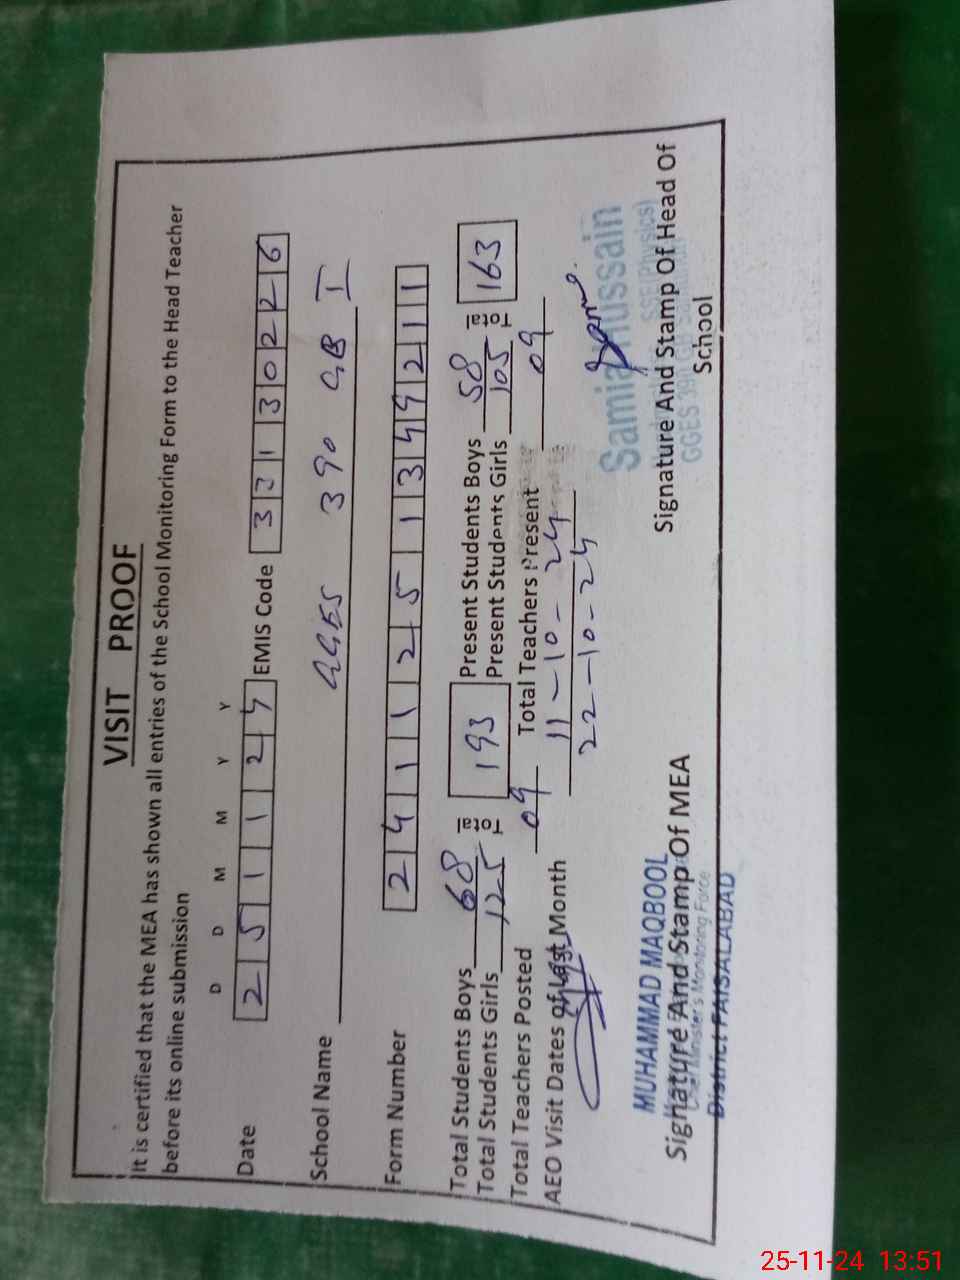 VISIT PROOF
It is certified that the MEA has shown all entries of the School Monitoring Form to the Head Teacher
before its online submission
D D M M Y Y
Date 2 5 1 1 2 4 EMIS Code 3 3 1 3 0 2 2 6
School Name GGES 390 GB I
Form Number 2 4 1 1 2 5 1 3 4 9 2 1 1
Total Students Boys 68 Total 193 Present Students Boys 58 Total 163
Total Students Girls 125 Present Students Girls 105
Total Teachers Posted 09 Total Teachers Present 09
AEO Visit Dates of Last Month 11-10-24
22-10-24
MUHAMMAD MAQBOOL
Signature And Stamp Of MEA
Chief Minister's Monitoring Force
District FAISALABAD
Samia Hussain
SSE(Physics)
GGES 390 GB
Signature And Stamp Of Head Of
School
25-11-24 13:51